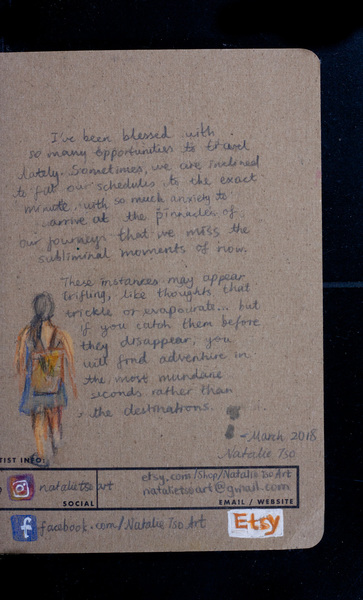 I've been blessed with
so many opportunities to travel
lately. Sometimes, we are inclined
to put our schedules to the exact
minute with so much anxiety to
arrive at the pinnacle of
our journeys that we miss the
subliminal moments of now.
These instances may appear
trifling, like thoughts that
trickle or evapourate... but
if you catch them before
they disappear, you
will find adventure in
the most mundane
seconds rather than
the destinations.
- March 2018
Natalie Tso
TIST INFO:
natalietso art
SOCIAL
etsy.com/shop/NatalieTsoArt
natalietsoart@gmail.com
EMAIL / WEBSITE
f facebook.com/Natalie Tso Art
Etsy